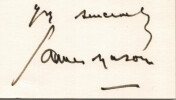 Yrs sincerely
James Mason